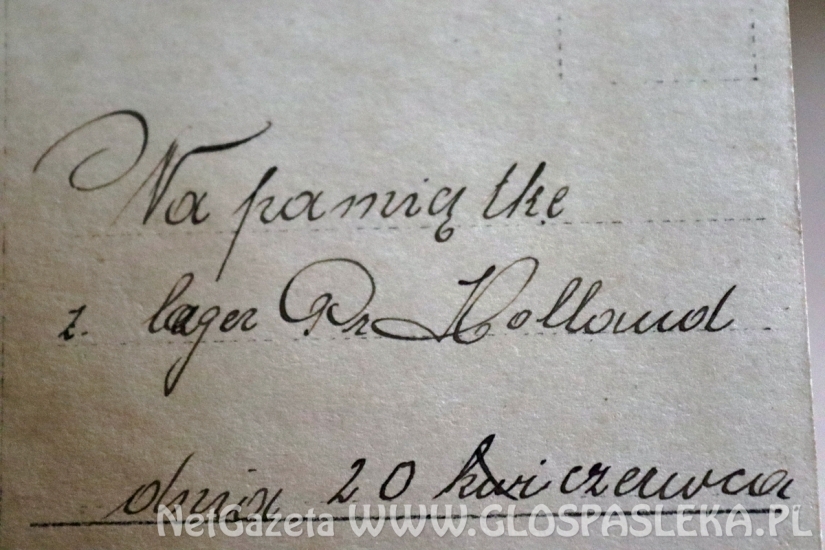 Na pamiątkę
z. lager Pr Holland
dnia 20 kwi czerwca
NetGazeta WWW.GLOSPASLEKA.PL